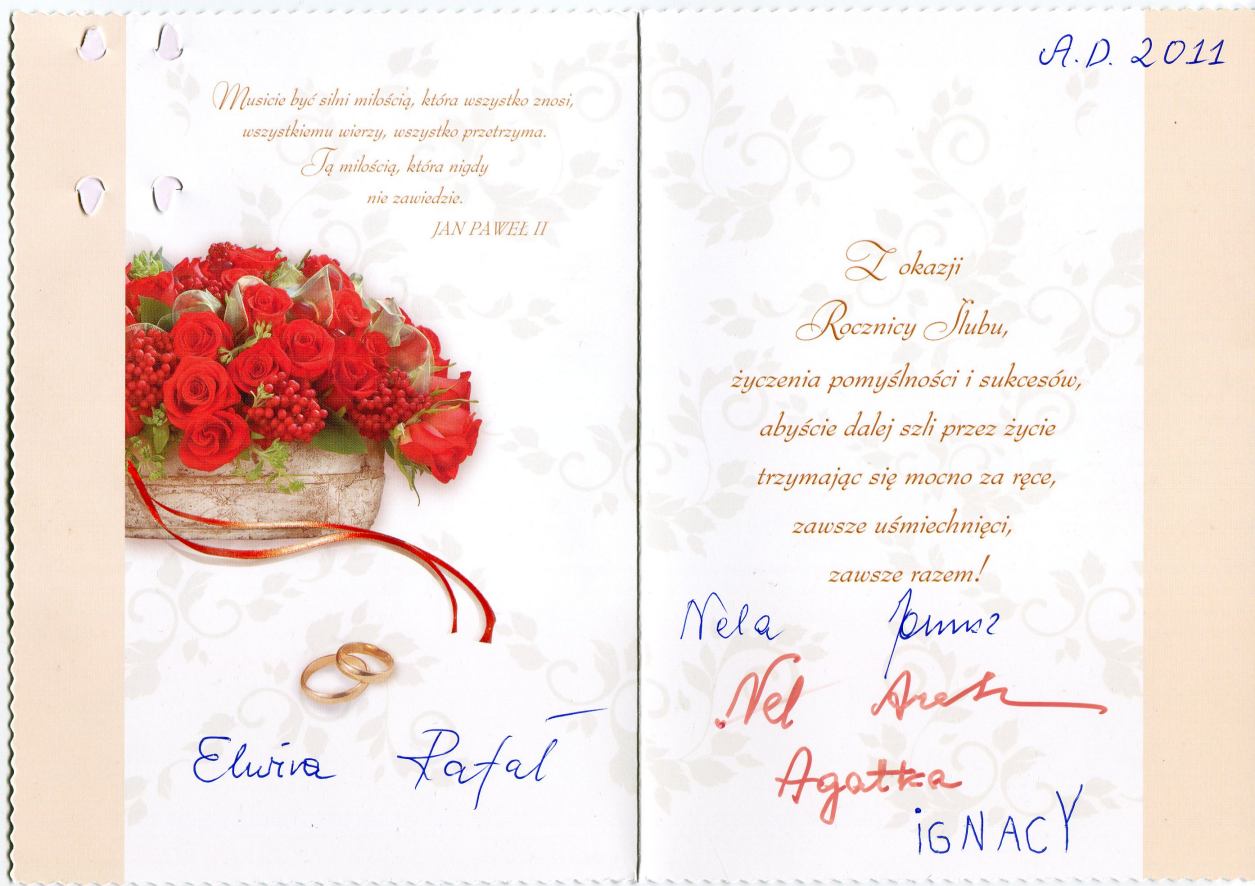 Musicie być silni miłością, która wszystko znosi,
wszystkiemu wierzy, wszystko przetrzyma.
Tą miłością, która nigdy
nie zawiedzie.
JAN PAWEŁ II
Elwira Rafał
A.D. 2011
Z okazji
Rocznicy Ślubu,
życzenia pomyślności i sukcesów,
abyście dalej szli przez życie
trzymając się mocno za ręce,
zawsze uśmiechnięci,
zawsze razem!
Nela Janusz
Nel Arek
Agatka
iGNACY